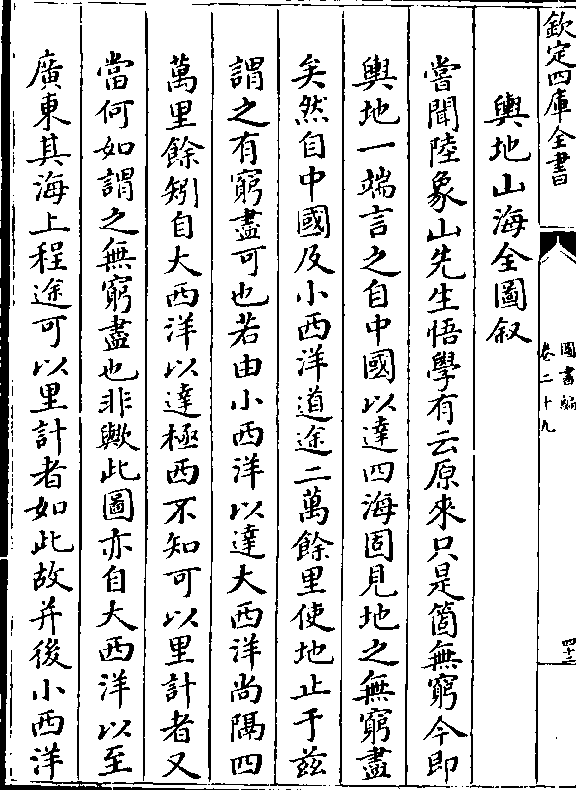 欽定四庫全書
圖書編
卷二十九
四十三
輿地山海全圖叙
嘗聞陸象山先生悟學有云原來只是箇無窮今即
輿地一端言之自中國以達四海固見地之無窮盡
矣然自中國及小西洋道途二萬餘里使地止于兹
謂之有窮盡可也若由小西洋以達大西洋尚隔四
萬里餘矧自大西洋以達極西不知可以里計者又
當何如謂之無窮盡也非歟此圖亦自大西洋以至
廣東其海上程途可以里計者如此故并後小西洋